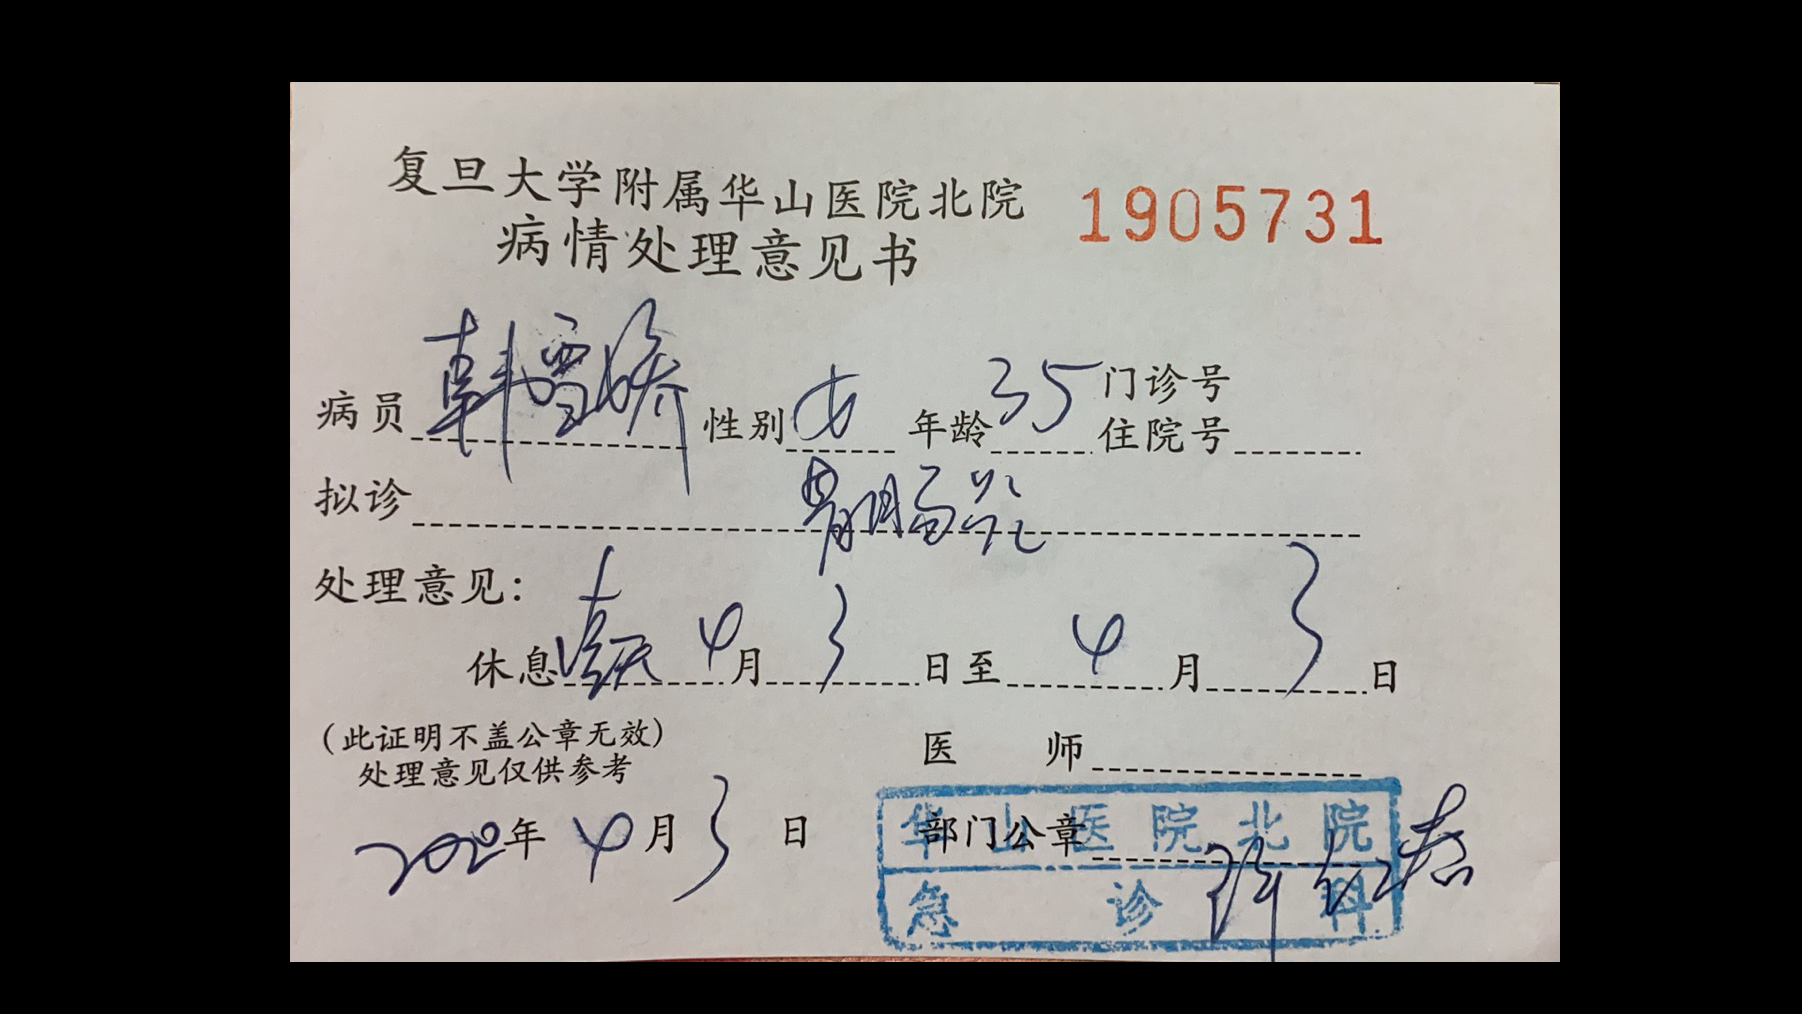 复旦大学附属华山医院北院
1905731
病情处理意见书
病员 韩雪娇 性别 女 年龄 35 门诊号
住院号
拟诊 胃肠
处理意见:
休息 壹天 4月 3 日至 4 月 3 日
(此证明不盖公章无效)
处理意见仅供参考
医 师
2020年 4月 3 日 部门公章
华山医院北院
急诊科